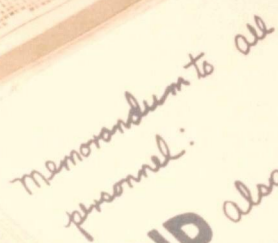 Memorandum to all
personnel:
also